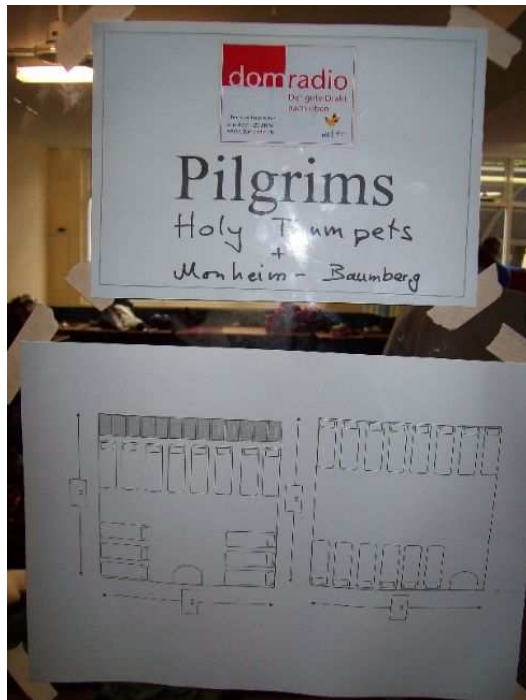 domradio
Der gute Draht
nach oben
Pilgrims
Holy Trumpets
+
Monheim - Baumberg